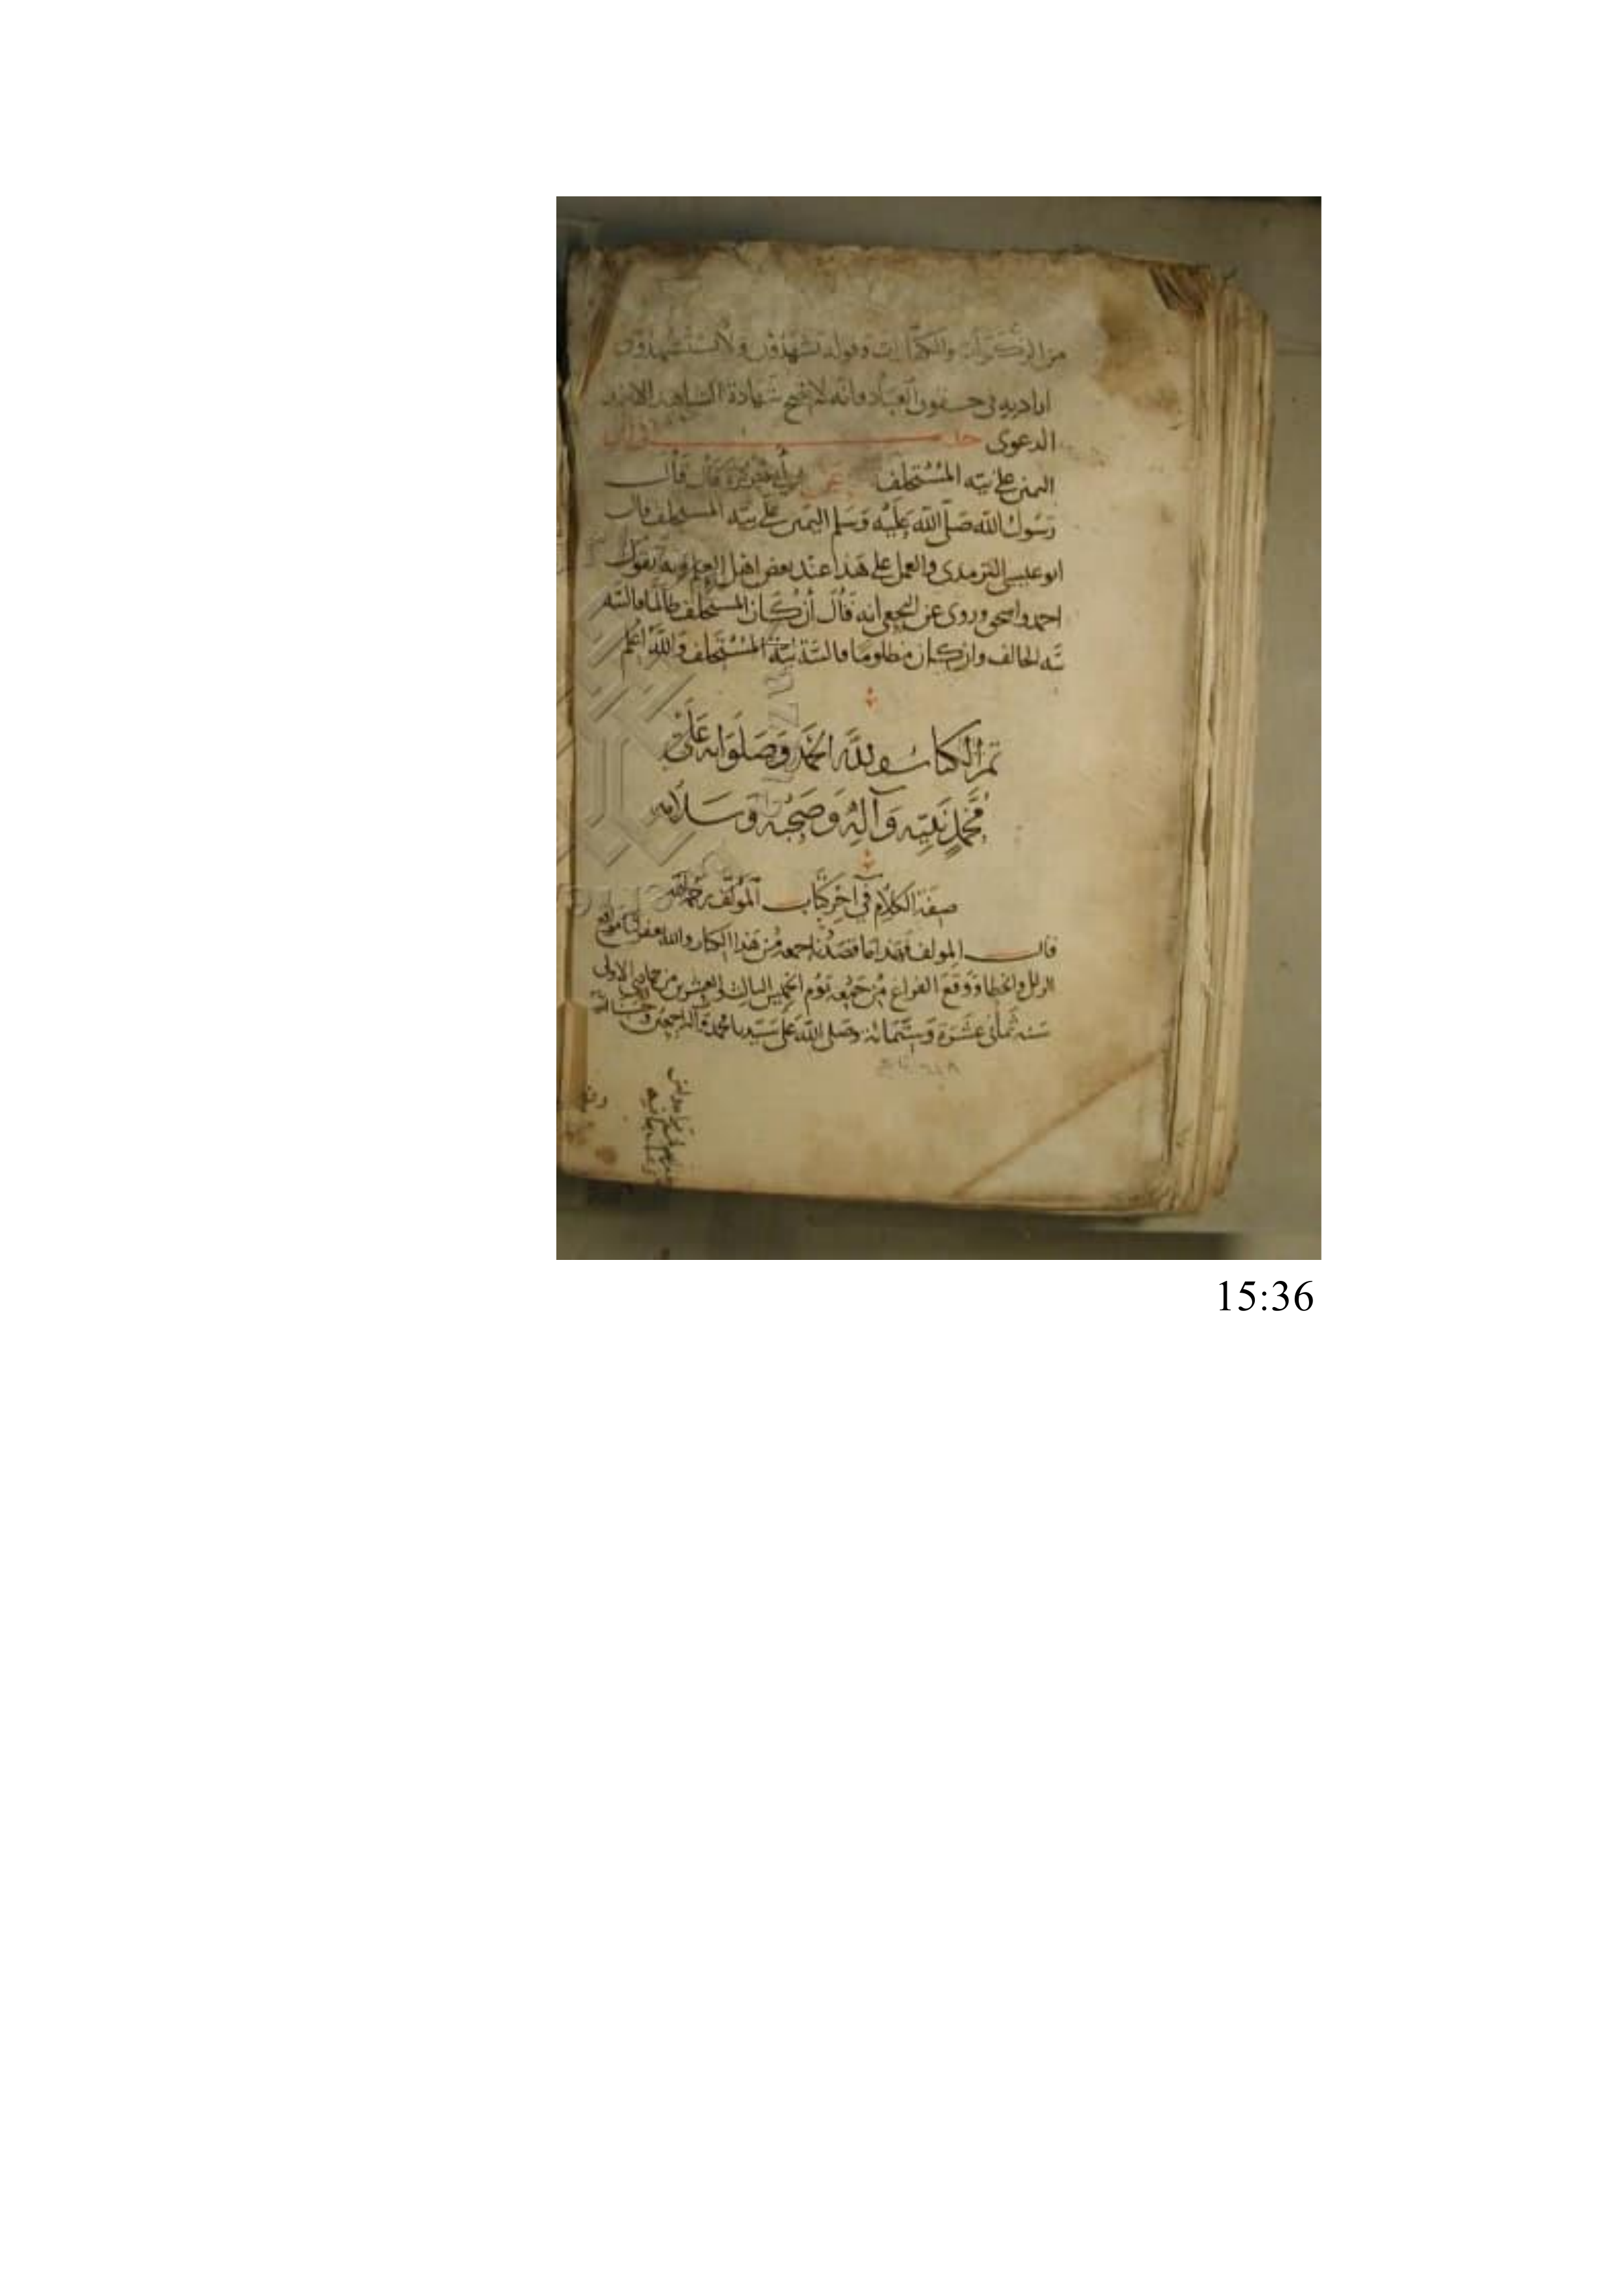 من الزكوات والكفارات وقوله تشهدون ولا تستشهدون
في حقوق العباد فانه لا تصح شهادة الشاهد الا
الدعوى
اليمين على نية المستحلف عن قال قال
رسول الله صلى الله عليه وسلم اليمين على نية المستحلف قال
ابو عيسى الترمذي والعمل على هذا عند بعض اهل العلم وبه يقول
احمد واسحق وروى عن النخعي انه قال ان كان المستحلف ظالما فالنية
نية الحالف وان كان مظلوما فالنية نية المستحلف والله اعلم
تم الكتاب ولله الحمد وصلواته على
محمد نبيه وآله وصحبه وسلامه
صفة الكلام في آخر كتاب المؤلف رحمه الله
قال المولف فهذا ما قصدنا جمعه من هذا الكتاب والله يغفر لنا
الزلل والخطا ووقع الفراغ من جمعه يوم الخميس الثالث والعشرين من جمادى الاولى
سنة ثماني عشرة وستمائة وصلى الله على سيدنا محمد وآله اجمعين
15:36